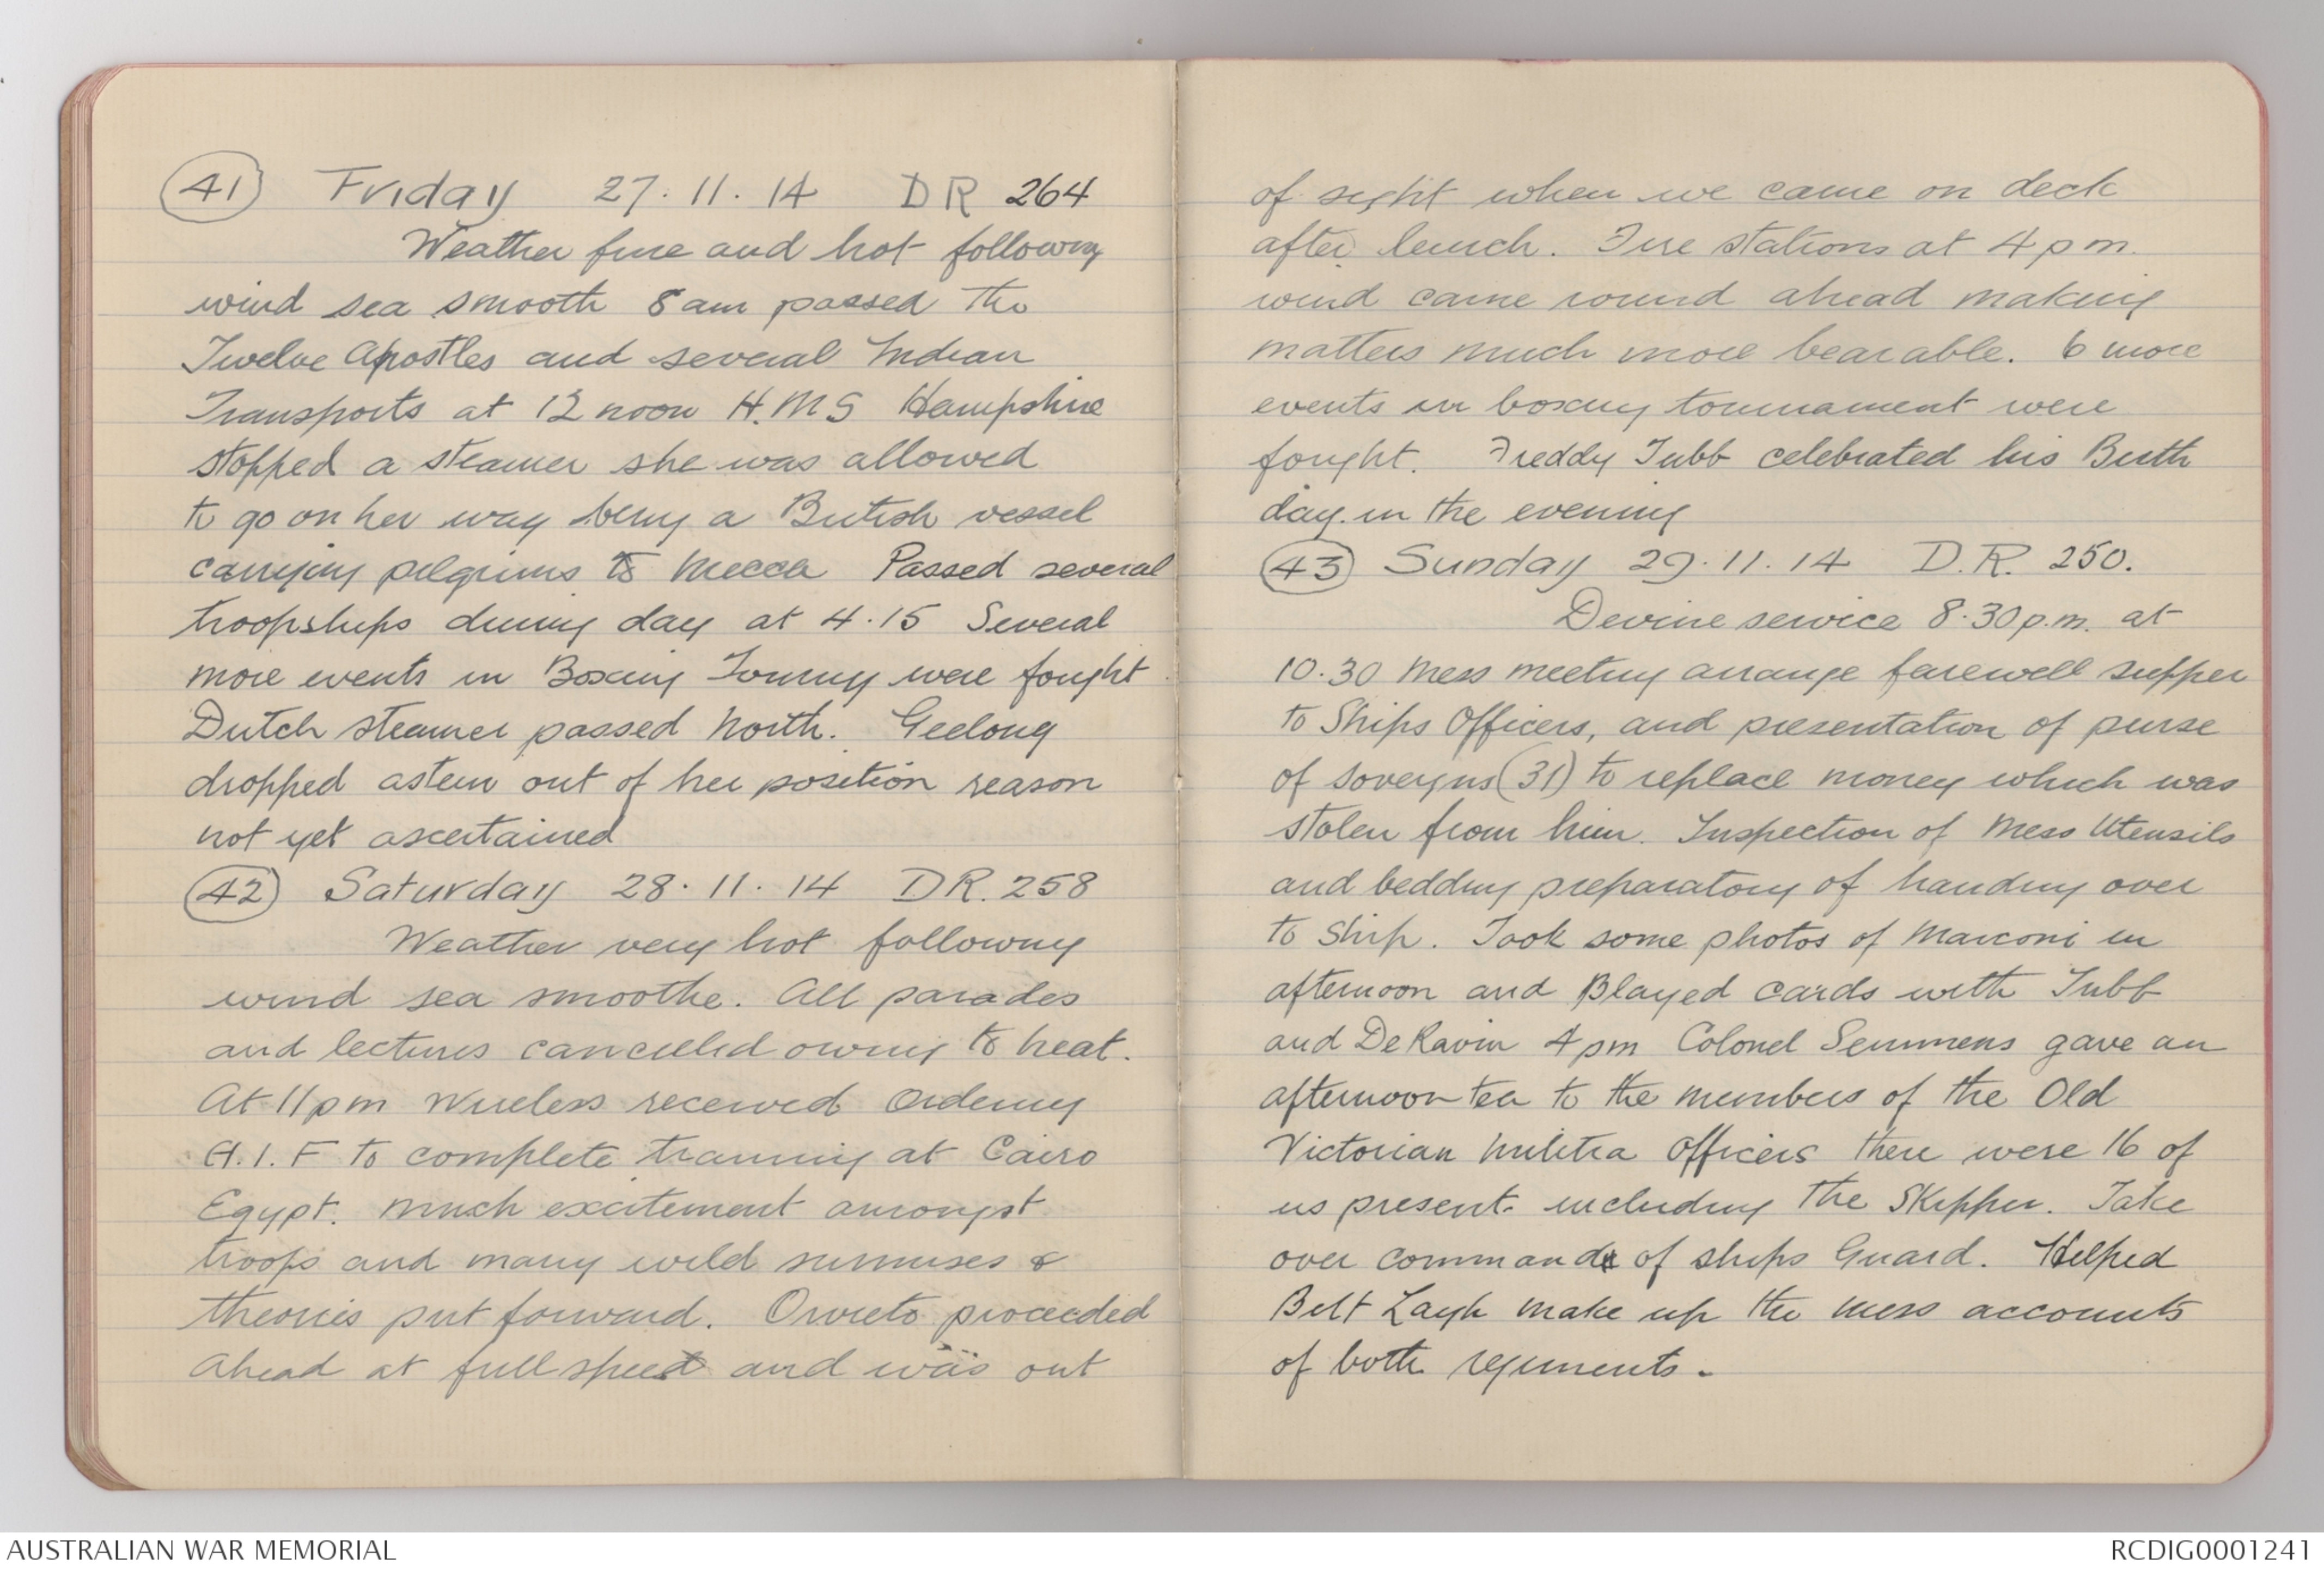 (41) Friday 27.11.14 DR 264
Weather fine and hot following
wind sea smooth 8am passed the
Twelve Apostles and several Indian
Transports at 12 noon H.M.S Hampshire
stopped a steamer she was allowed
to go on her way being a British vessel
carrying pilgrims to Mecca Passed several
troopships during day at 4.15 Several
more events in Boxing Tourny were fought
Dutch steamer passed North. Geelong
dropped astern out of her position reason
not yet ascertained
(42) Saturday 28.11.14 DR. 258
Weather very hot following
wind sea smoothe. All parades
and lectures cancelled owing to heat.
At 11pm Wireless received Ordering
A.I.F to complete training at Cairo
Egypt. Much excitement amongst
troops and many wild surmises &
theories put forward. Orvieto proceeded
ahead at full speed and was out
of sight when we came on deck
after lunch. Fire stations at 4 pm.
wind came round ahead making
matters much more bearable. 6 more
events in boxing tournament were
fought. Freddy Tubb celebrated his Birth
day in the evening
(43) Sunday 29.11.14 D.R. 250.
Devine service 8.30 p.m. at
10.30 Mess meeting arrange farewell supper
to Ships Officers, and presentation of purse
of soverigns (31) to replace money which was
stolen from him. Inspection of Mess Utensils
and bedding preparatory of handing over
to Ship. Took some photos of Marconi in
afternoon and Played cards with Tubb
and DeRavin 4 pm Colonel Semmens gave an
afternoon tea to the members of the Old
Victorian Militia Officers there were 16 of
us present including the Skipper. Take
over command of ships Guard. Helped
Bert Layh make up the mess accounts
of both regiments -
AUSTRALIAN WAR MEMORIAL
RCDIG0001241